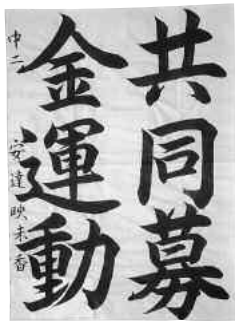 共同募
金運動
中二 安達映未香